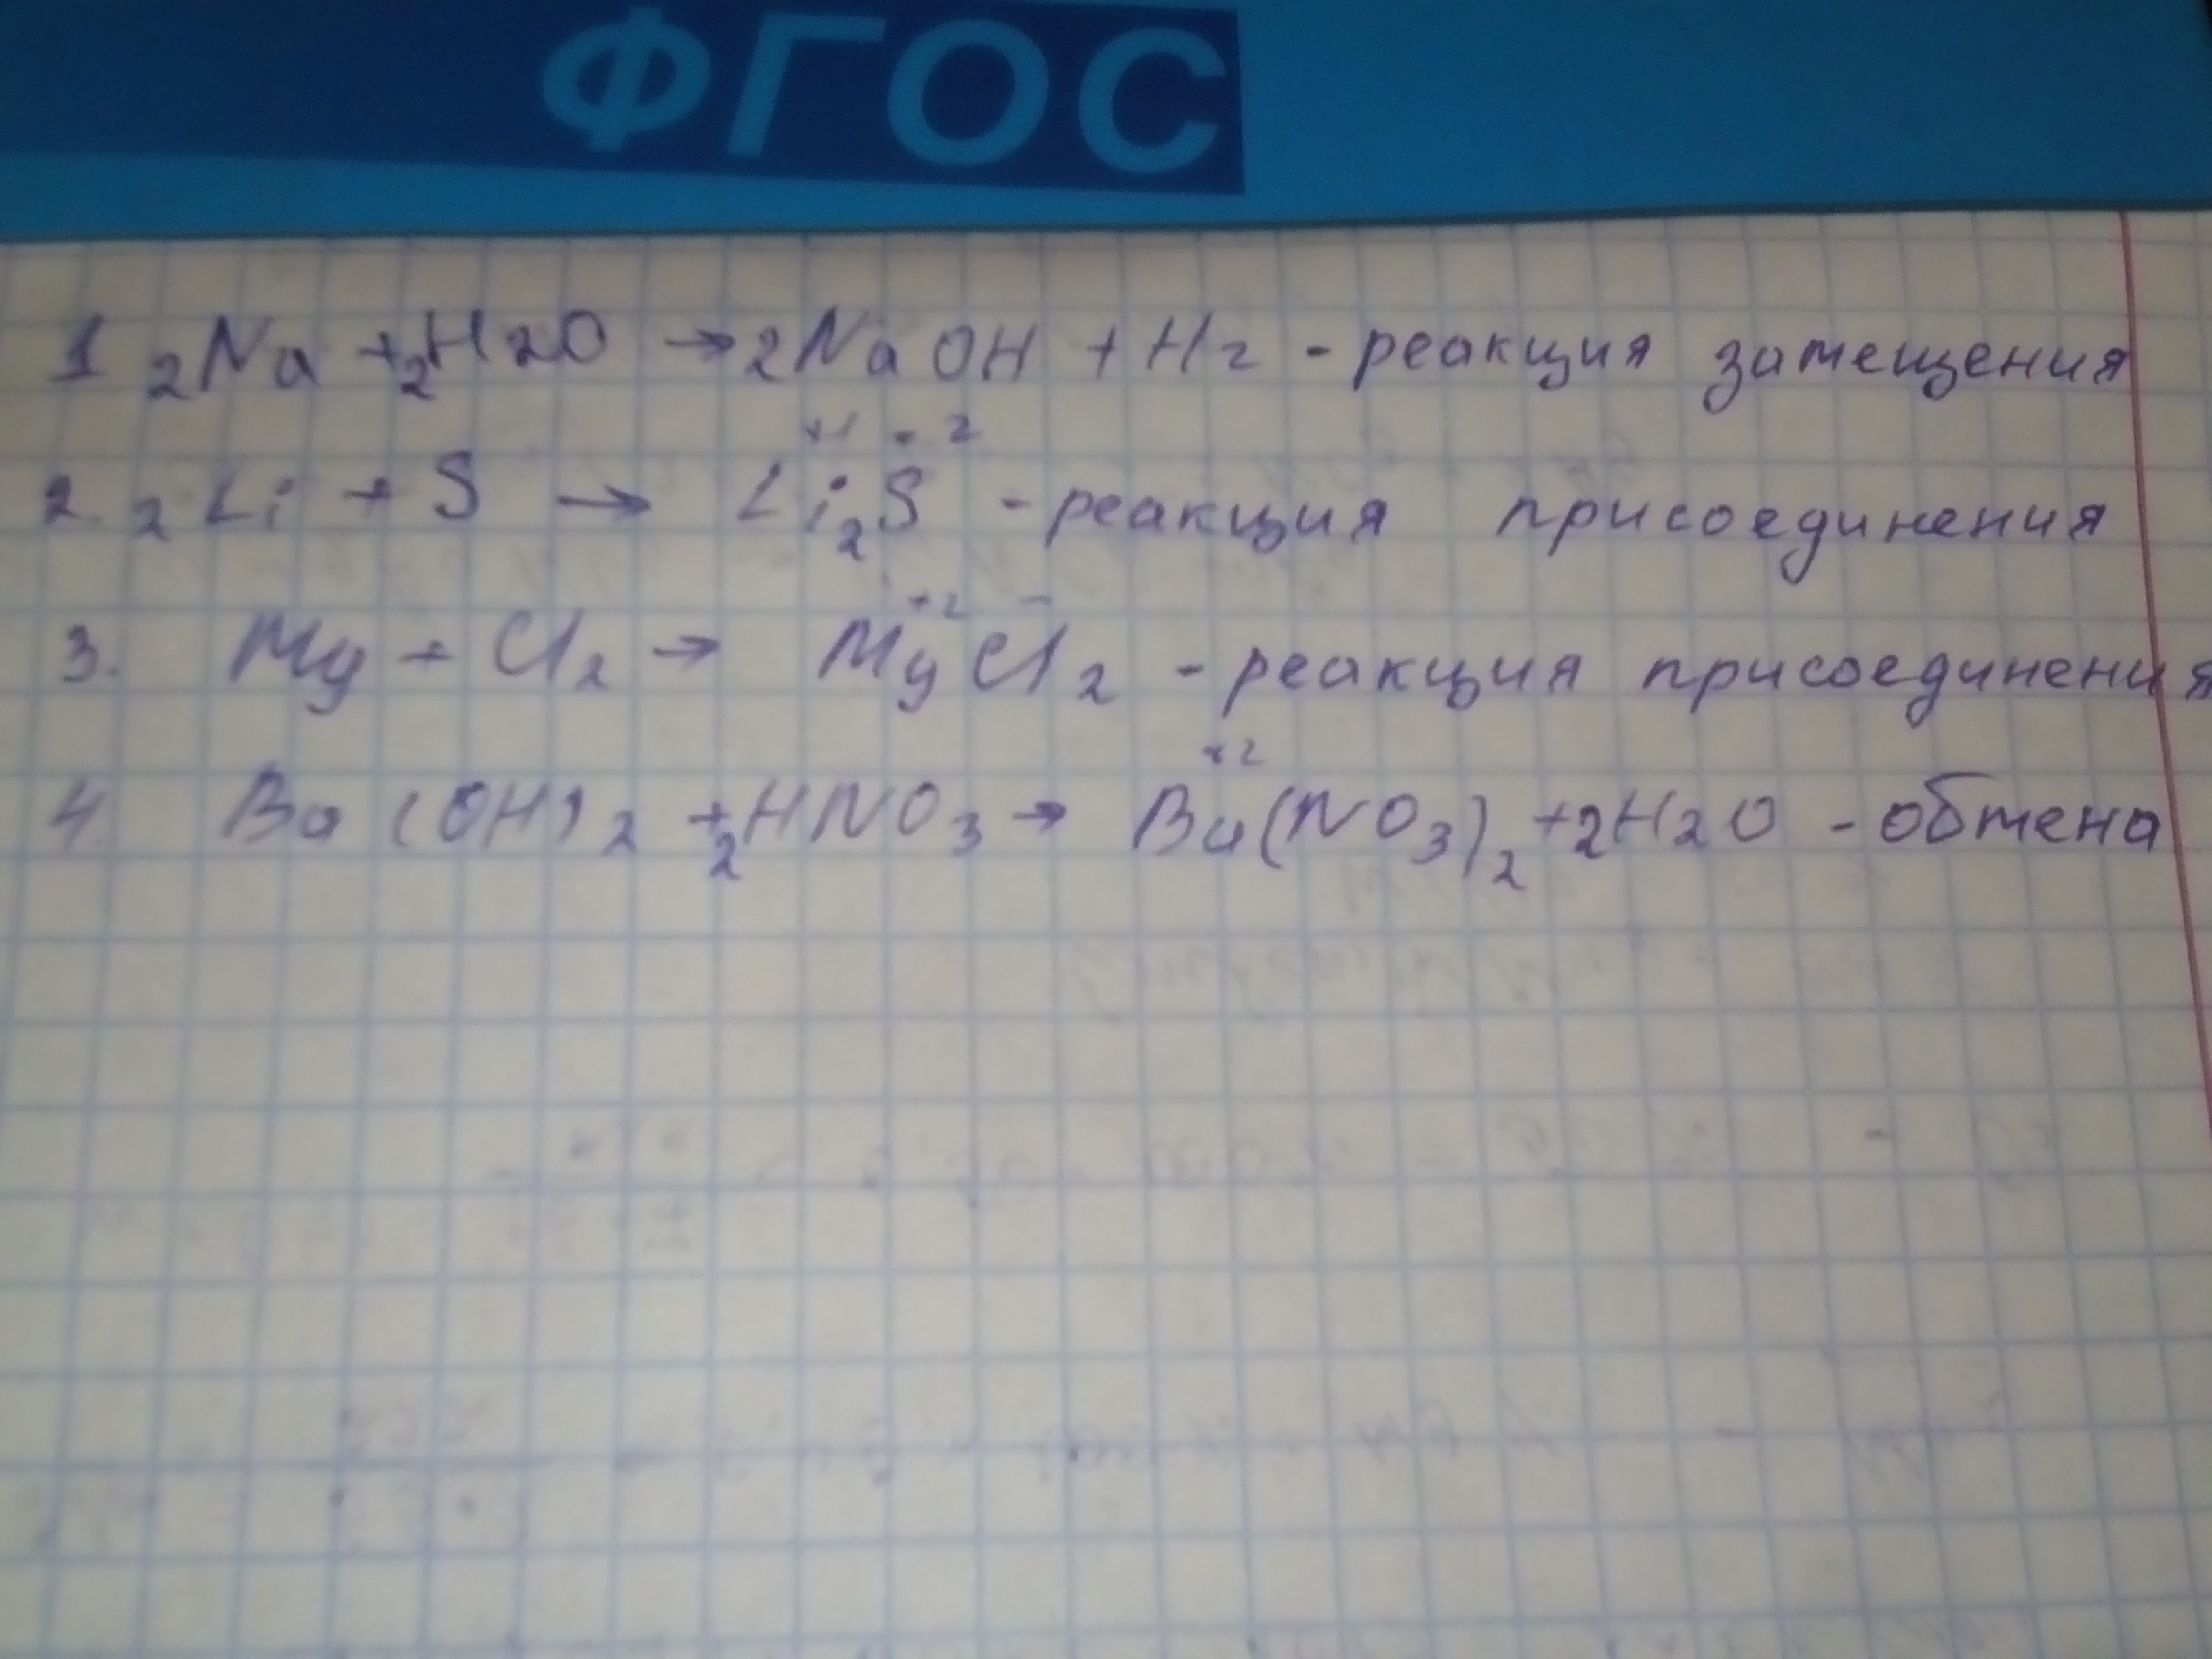 ФГОС
1 2Na + 2H2O → 2NaOH + H2 - реакция замещения
+1 -2
2. 2Li + S → Li2S - реакция присоединения
+2 -
3. Mg + Cl2 → MgCl2 - реакция присоединения
+2
4. Ba(OH)2 + 2HNO3 → Ba(NO3)2 + 2H2O - обмена